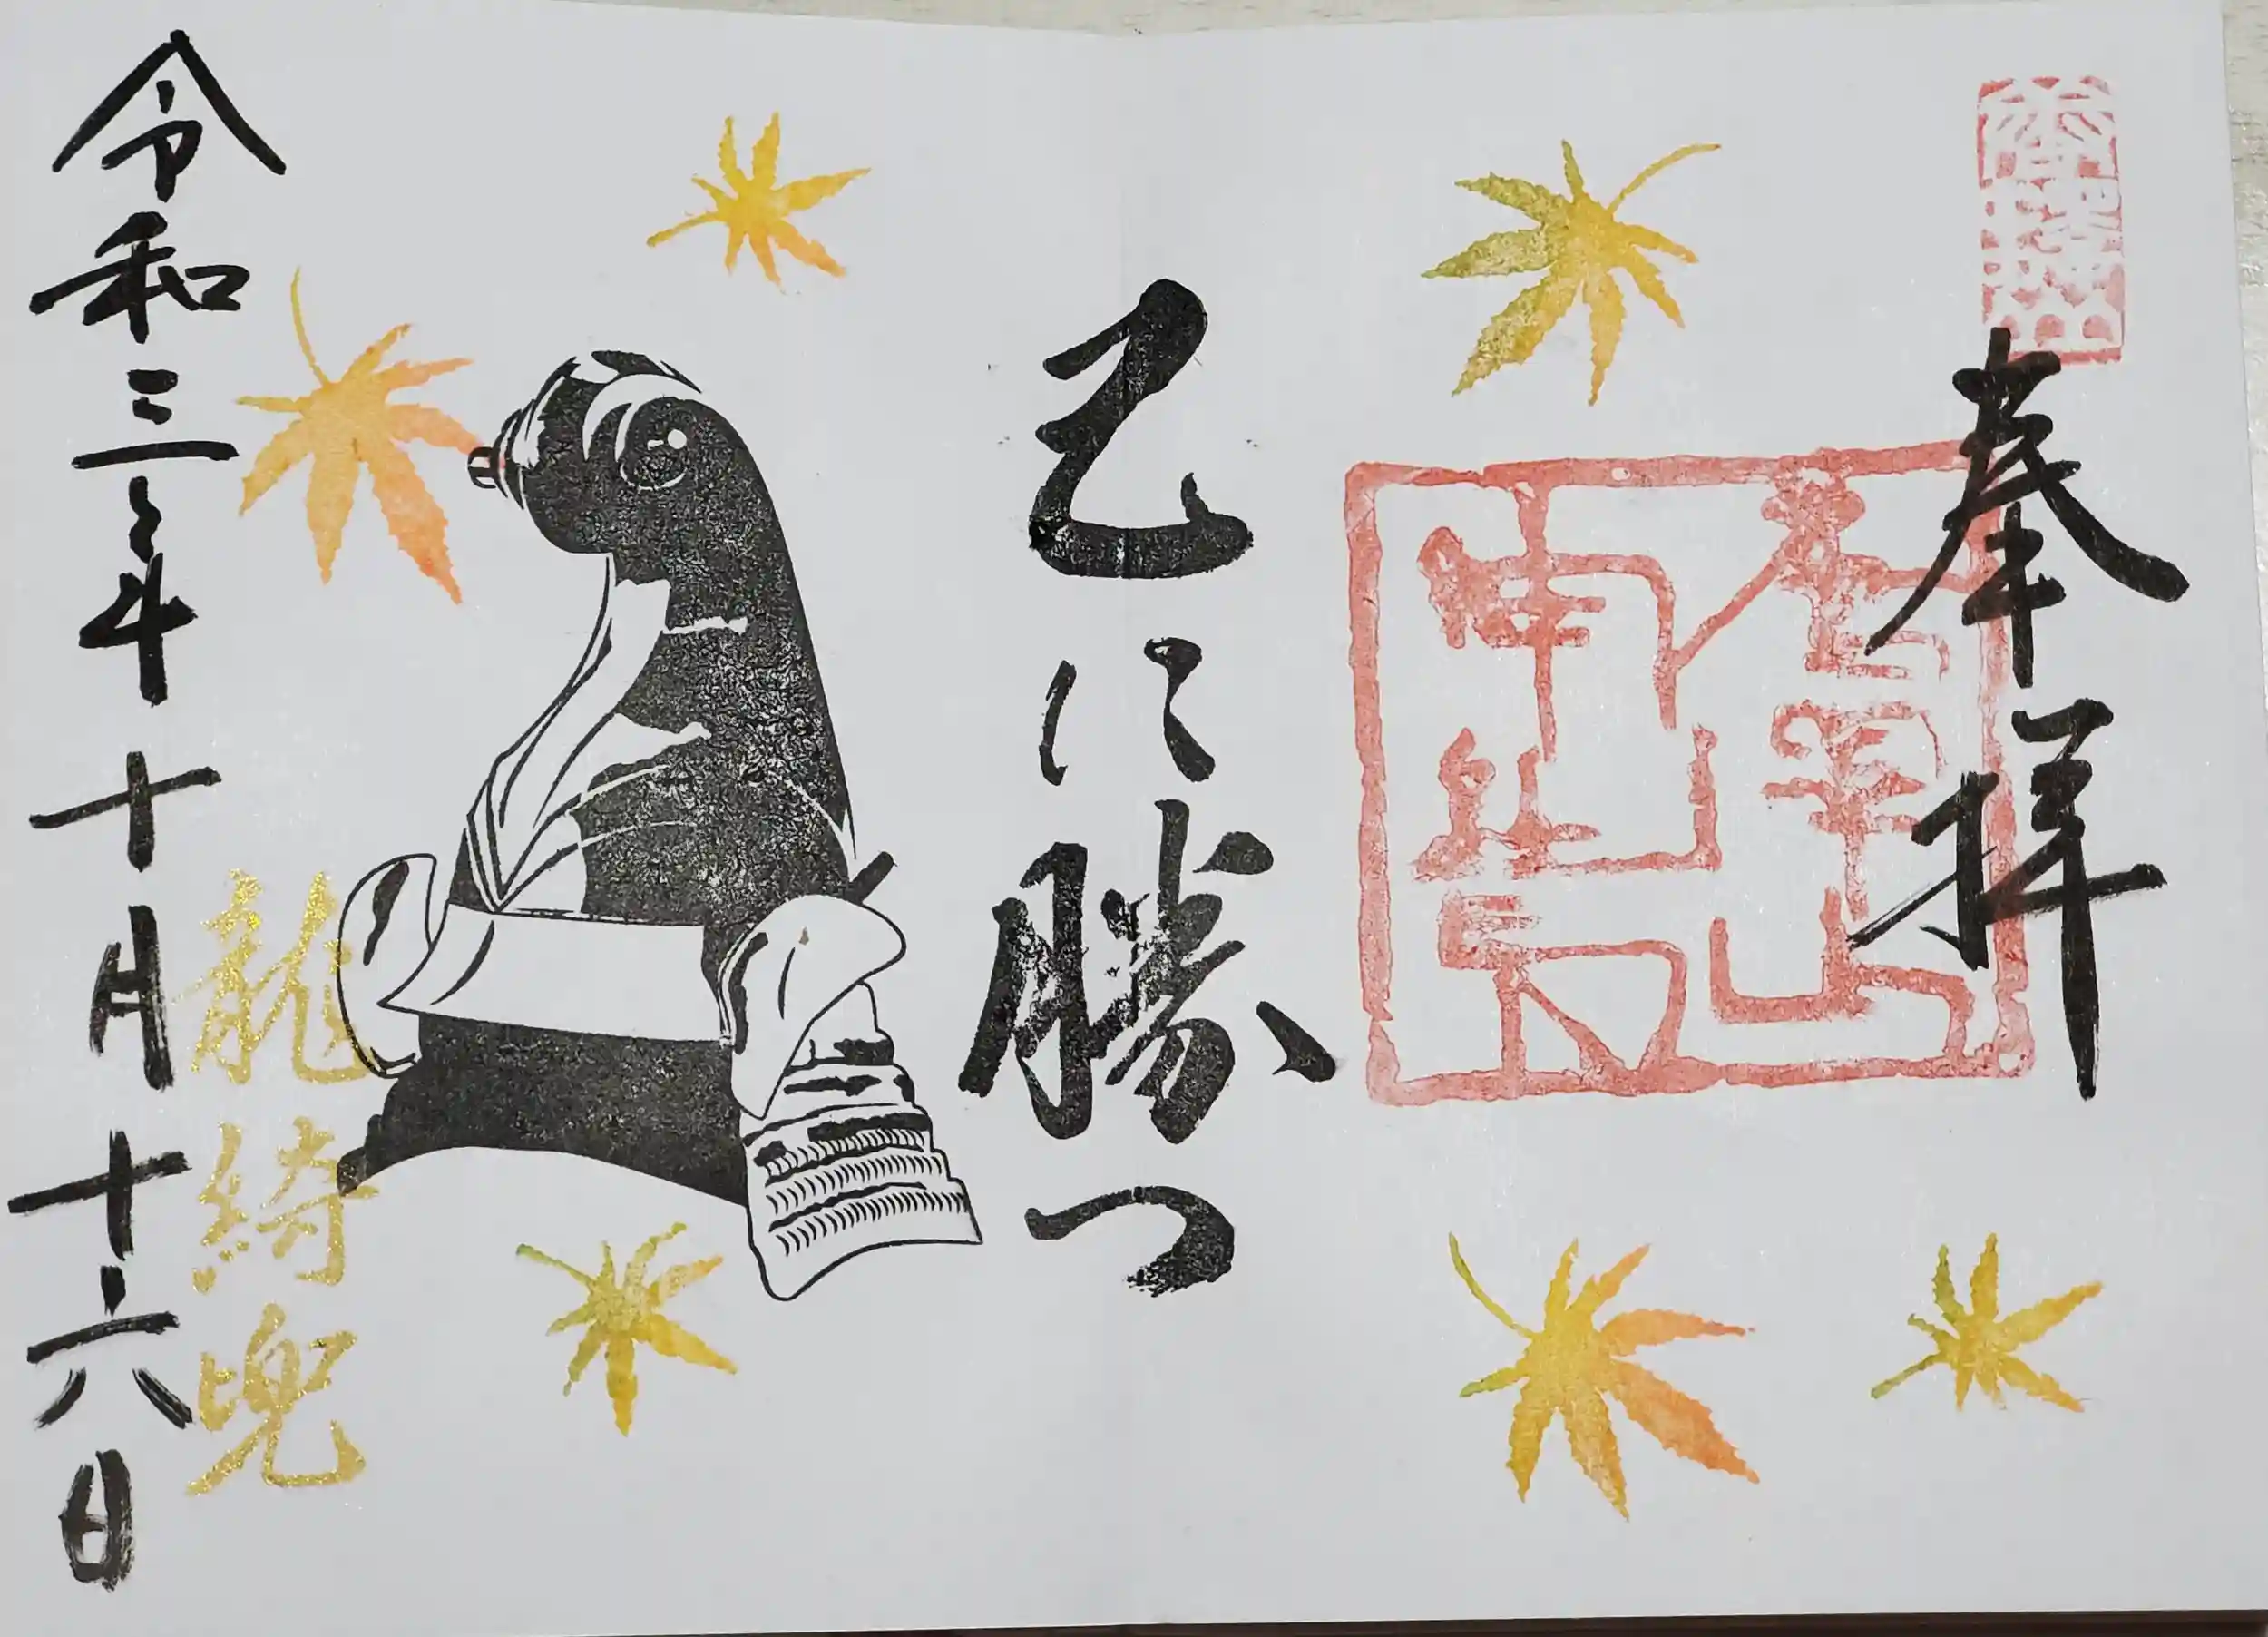 奉拝
己に勝つ
龍綺兜
令和三年十月十六日